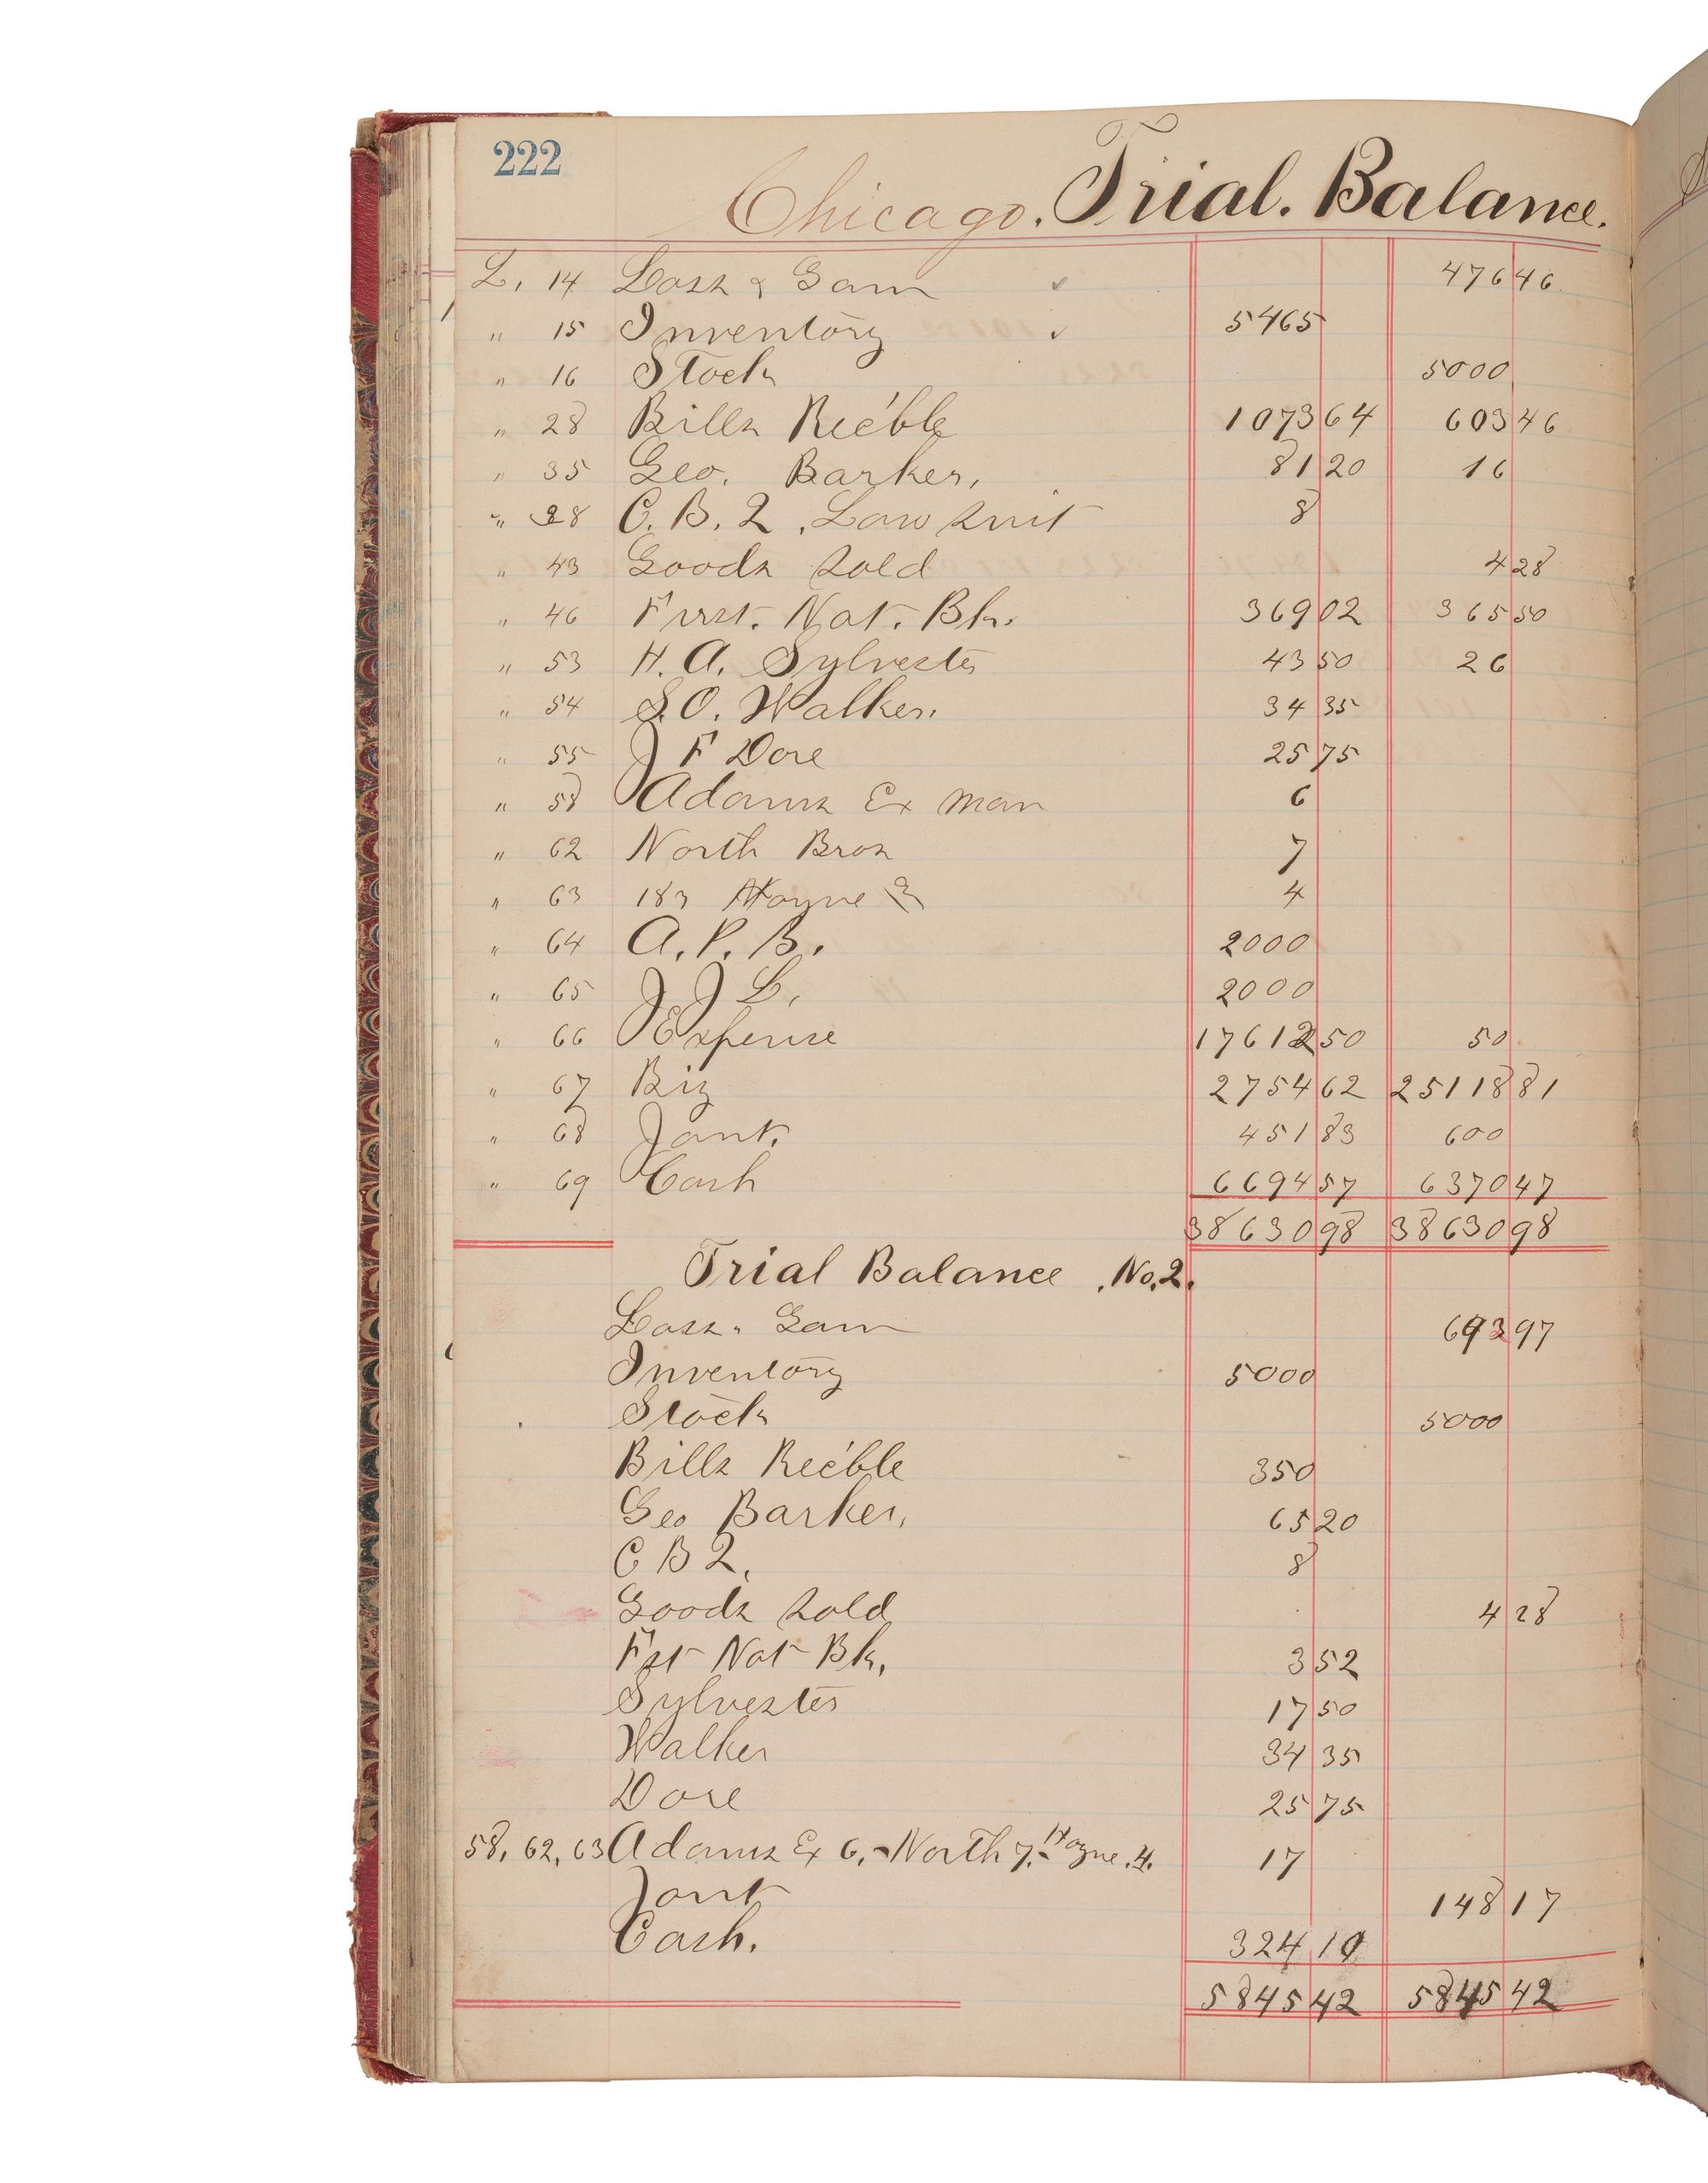 222
Chicago. Trial. Balance.
L. 14 Loss & Gain 476 46
" 15 Inventory 5465
" 16 Stock 5000
" 28 Bills Rec'ble 1073 64 603 46
" 35 Geo. Barker, 81 20 16
" 38 C. B. Q. Law suit 8
" 43 Goods sold 4 28
" 46 First. Nat. Bk. 369 02 365 50
" 53 H. A. Sylvester 43 50 26
" 54 S. O. Walker. 34 35
" 55 J F Dore 25 75
" 58 Adams Ex man 6
" 62 North Bros 7
" 63 183 Hoyne 4
" 64 A. P. B. 2000
" 65 J J L. 2000
" 66 Expense 17612 50 50
" 67 Biz 2754 62 25118 81
" 68 Jant. 451 83 600
" 69 Cash 6694 57 6370 47
38630 98 38630 98
Trial Balance . No. 2.
Loss. Gain 693 97
Inventory 5000
Stock 5000
Bills Rec'ble 350
Geo Barker, 65 20
C B Q. 8
Goods sold 4 28
Fst Nat Bk, 3 52
Sylvester 17 50
Walker 34 35
Dore 25 75
58, 62, 63 Adams Ex 6, - North 7. - Hoyne. 4. 17
Jant 148 17
Cash. 324 10
5845 42 5845 42